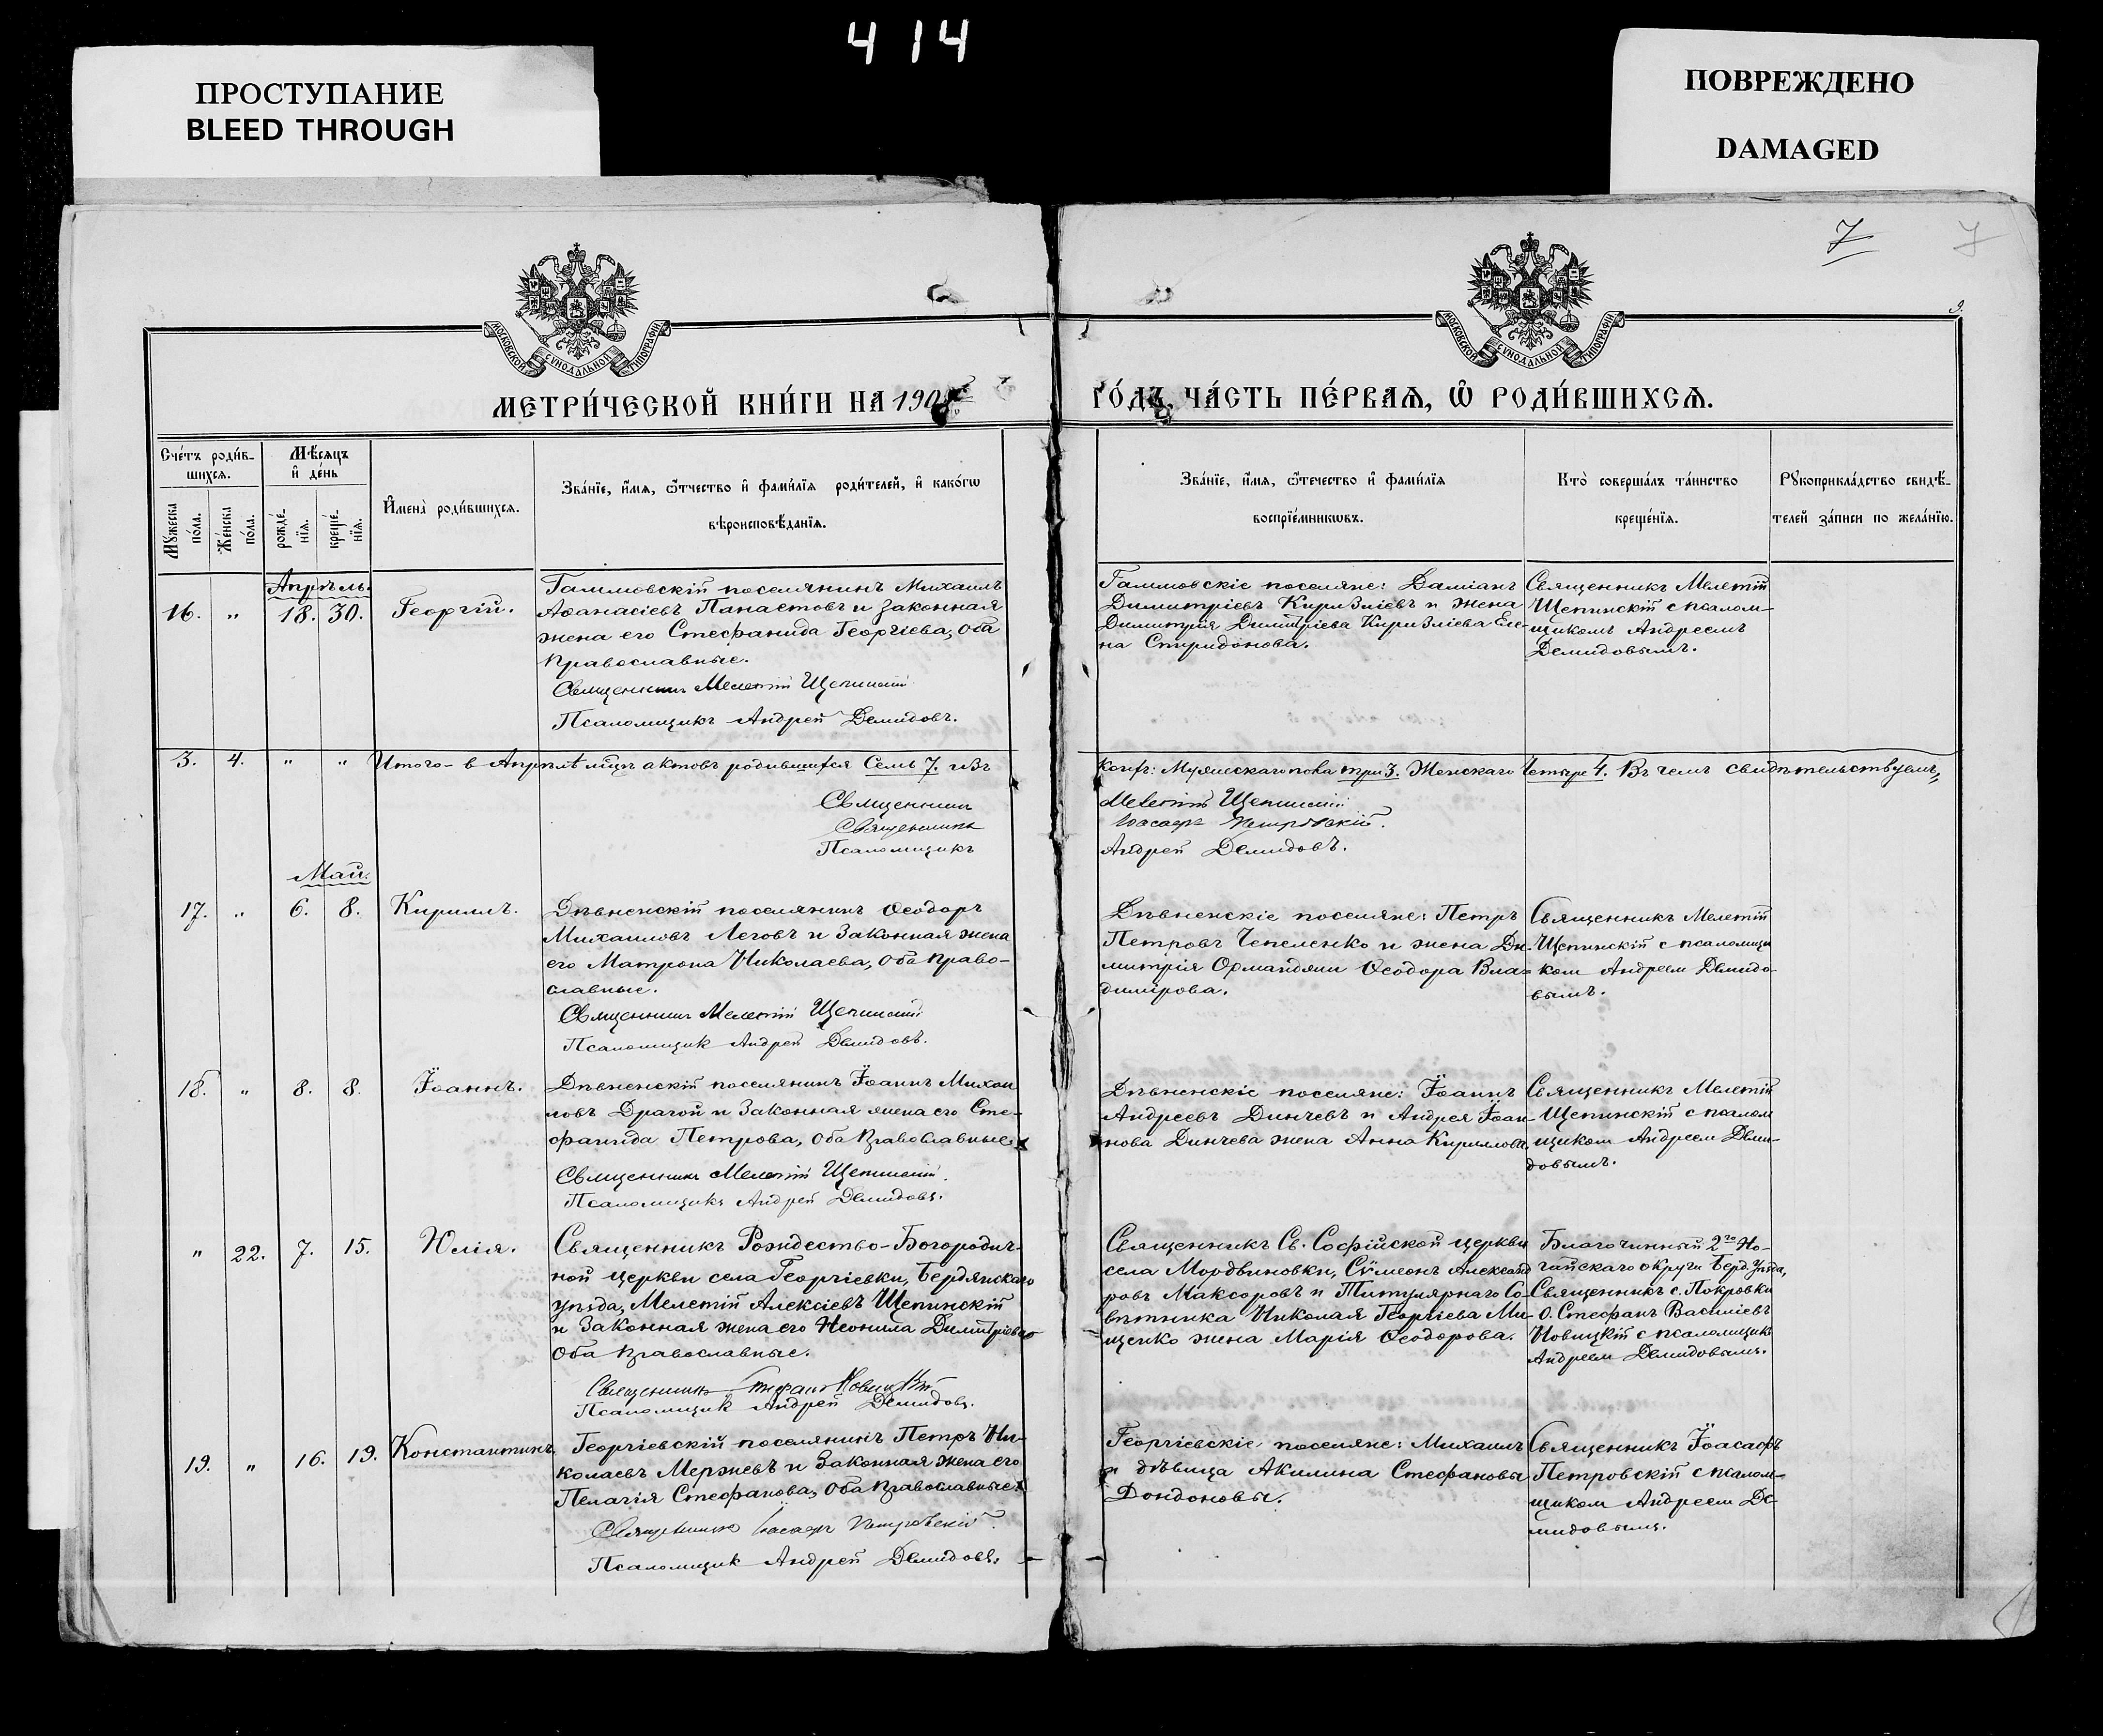 4 14
ПРОСТУПАНИЕ
BLEED THROUGH
ПОВРЕЖДЕНО
DAMAGED
7 7
3.
МОСКОВСКОЙ СѴНОДАЛЬНОЙ ТИПОГРАФІИ
МОСКОВСКОЙ СѴНОДАЛЬНОЙ ТИПОГРАФІИ
МЕТРИ́ЧЕСКОЙ КНИ́ГИ НА 190
ГО́ДЪ, ЧА́СТЬ ПЕ́РВАѦ, Ѡ РОДИ́ВШИХСѦ.
Сче́тъ роди́в-
шихсѧ.
Мꙋ́жеска по́ла.
Же́нска по́ла.
Мѣ́сѧцъ
и҆ де́нь
рожде́-нїѧ.
креще́-нїѧ.
И҆мена̀ роди́вшихсѧ.
Зва́нїе, и҆́мѧ, ѻ҆́тчество и҆ фами́лїѧ роди́телей, и҆ како́гѡ
вѣроисповѣ́данїѧ.
Зва́нїе, и҆́мѧ, ѻ҆́течество и҆ фами́лїѧ
воспрїе́мникѡвъ.
Кто̀ соверша́лъ та́инство
креще́нїѧ.
Рꙋкоприкла́дство свидѣ́-
телей за́писи по жела́нїю.
Апрѣль.
16. " 18. 30. Георгій.
Галимовскій поселянинъ Михаилъ
Аѳанасіевъ Панаетовъ и законная
жена его Стефанида Георгіева, оба
православные.
Священникъ Мелетій Щепинскій
Псаломщикъ Андрей Демидовъ.
Галимовскіе поселяне: Даміанъ
Димитріевъ Киризліевъ и жена
Димитрія Димитріева Киризліева Еле-
на Спиридонова.
Священникъ Мелетій
Щепинскій с псалом-
щикомъ Андреемъ
Демидовымъ.
3. 4. " " Итого в Апрѣлѣ мцѣ актовъ родившихся Семь 7. изъ
коихъ: Мужескаго пола три 3. Женскаго Четыре 4. Въ чемъ свидѣтельствуемъ,
Священникъ Мелетій Щепинскій
Священникъ Іоасафъ Петровскій.
Псаломщикъ Андрей Демидовъ.
Май.
17. " 6. 8. Кириллъ.
Дѣвненскій поселянинъ Ѳеодоръ
Михаиловъ Леговъ и законная жена
его Матрона Николаева, оба право-
славные.
Священникъ Мелетій Щепинскій
Псаломщик Андрей Демидовъ.
Дѣвненскіе поселяне: Петръ
Петровъ Чепеленко и жена Ди-
митрія Орманджи Ѳеодора Вла-
димірова.
Священникъ Мелетій
Щепинскій с псаломщи
ком Андреем Демидо
вымъ.
18. " 8. 8. Іоаннъ.
Дѣвненскій поселянинъ Іоаннъ Михаи
ловъ Драгой и законная жена его Сте-
фанида Петрова, оба православные.
Священникъ Мелетій Щепинскій.
Псаломщикъ Андрей Демидовъ.
Дѣвненскіе поселяне: Іоаннъ
Андреевъ Динчевъ и Андрея Іоан-
нова Динчева жена Анна Кириллова.
Священникъ Мелетій
Щепинскій с псалом
щиком Андреем Деми-
довымъ.
" 22. 7. 15. Юлія.
Священникъ Рождество-Богородич-
ной церкви села Георгіевки, Бердянскаго
уѣзда, Мелетій Алексіевъ Щепинскій
и законная жена его Неонила Димитріева
оба православные.
Священникъ Стефанъ Новицкій
Псаломщик Андрей Демидовъ.
Священникъ Св. Софійской церкви
села Мордвиновки, Сѵмеонъ Александ
ровъ Максоровъ и Титулярнаго Со-
вѣтника Николая Георгіева Ми-
щенко жена Марія Ѳеодорова.
Благочинный 2го Но-
гайскаго округа Берд. уѣзда,
Священникъ с. Покровки
о. Стефанъ Василіевъ
Новицкій с псаломщик
Андреем Демидовымъ.
19. " 16. 19. Константинъ.
Георгіевскій поселянинъ Петръ Ни-
колаевъ Мержевъ и законная жена его
Пелагія Стефанова, оба православные.
Священникъ Іоасафъ Петровскій.
Псаломщик Андрей Демидовъ.
Георгіевскіе поселяне: Михаилъ
и дѣвица Акилина Стефановы
Дондоновы.
Священникъ Іоасафъ
Петровскій с псалом-
щиком Андреем Де
мидовымъ.